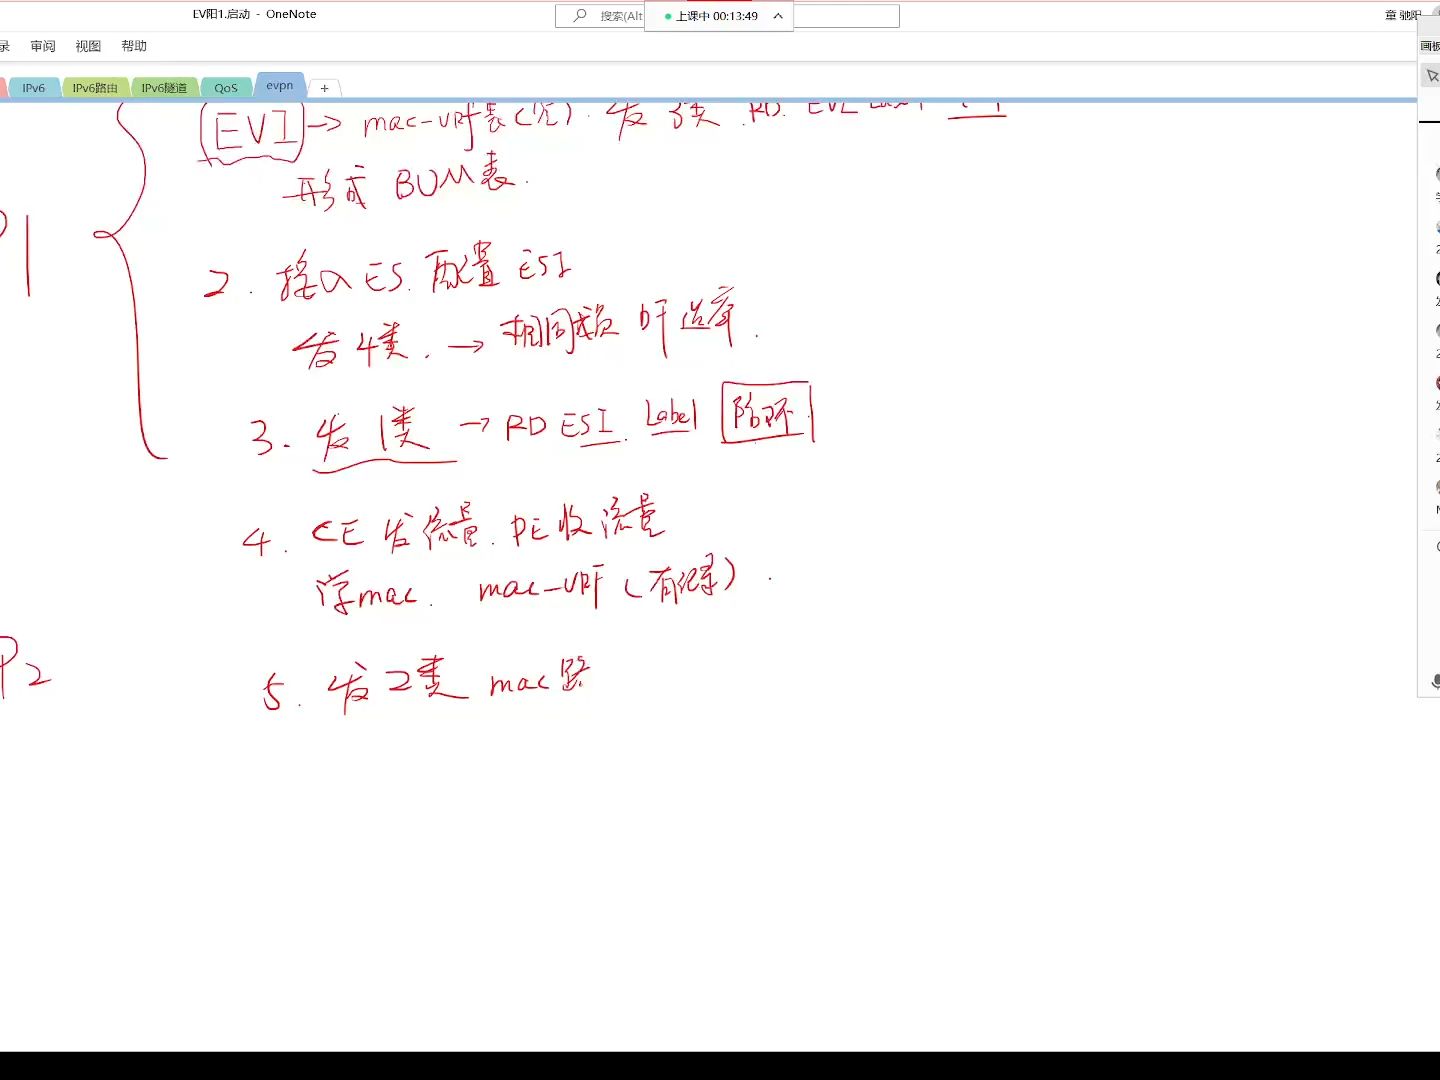 EV阳1.启动 - OneNote
搜索(Alt
上课中 00:13:49
童 驰阳
录 审阅 视图 帮助
画板
IPv6 IPv6路由 IPv6隧道 QoS evpn +
EVI → mac-VRF表(空). 发 3类 .RD. EVI Label
形成 BUM表.
P1
2. 接入ES. 配置 ESI
发 4类. → 相同 DF 选举.
3. 发 1类 → RD ESI. Label 防环
4. CE 发流量. PE收流量
学mac. mac-VRF (有记录).
P2
5. 发 2类 mac 路